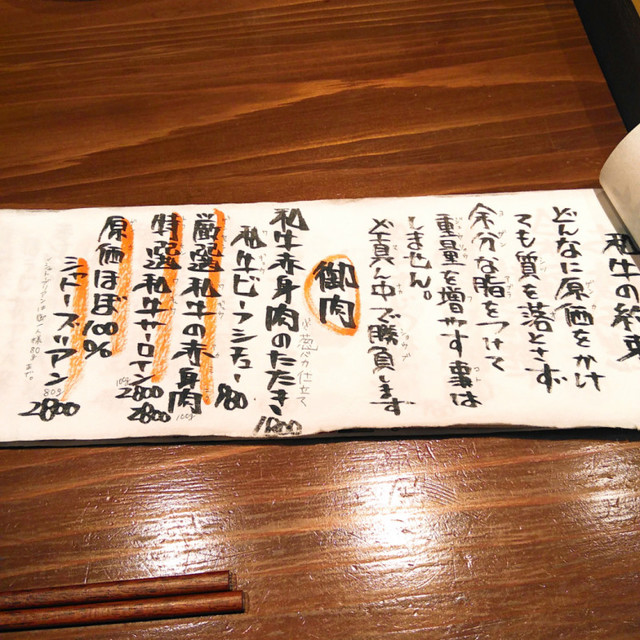 和牛の約束
どんなに原価をかけ
ても質を落とさず
余分な脂をつけて
重量を増やす事は
しません。
ど真ん中で勝負します
御肉
和牛赤身肉のたたき
1200
和牛ビーフシチュー 980
厳選和牛の赤身肉
100g 2800
特選和牛サーロイン
100g 2800
原価ほぼ100%
シャトーブリアン
80g 2800